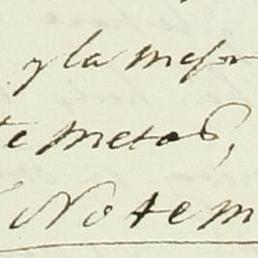 y la mejor
te metad,
Notem